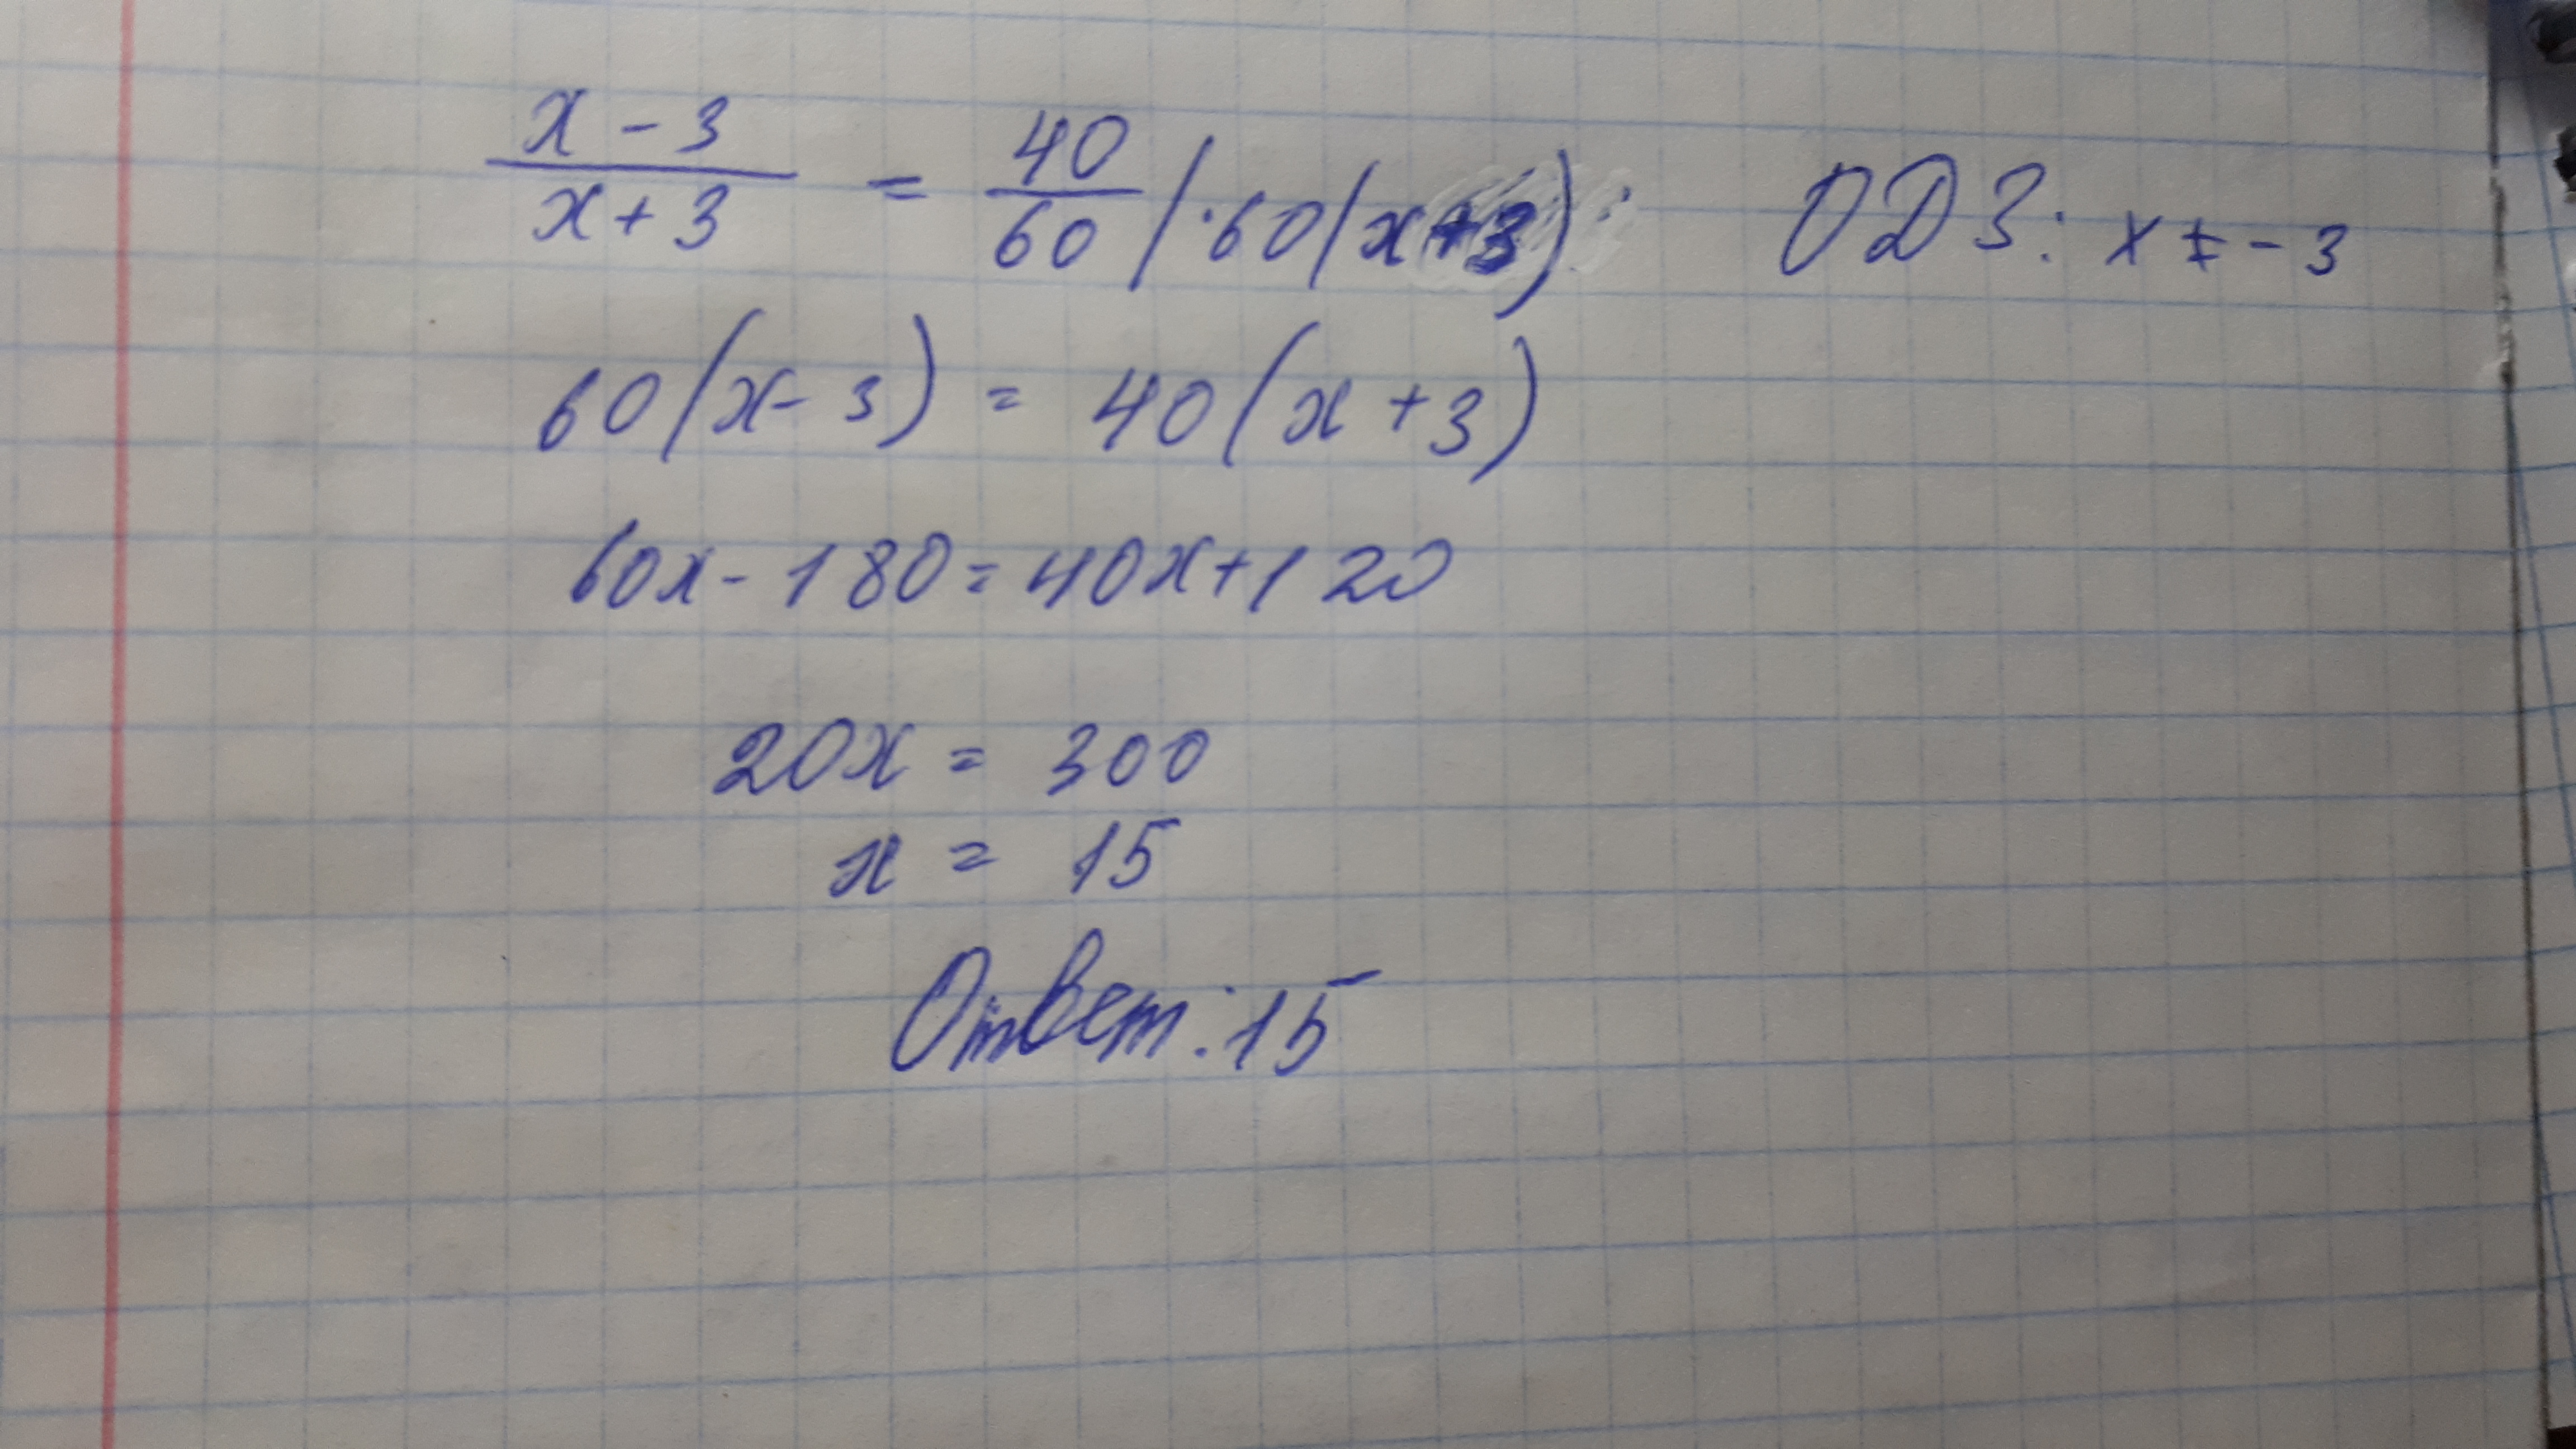 x - 3 / x + 3 = 40 / 60 | · 60 (x+3) ОДЗ: x ≠ - 3
60 (x - 3) = 40 (x + 3)
60x - 180 = 40x + 120
20x = 300
x = 15
Ответ: 15